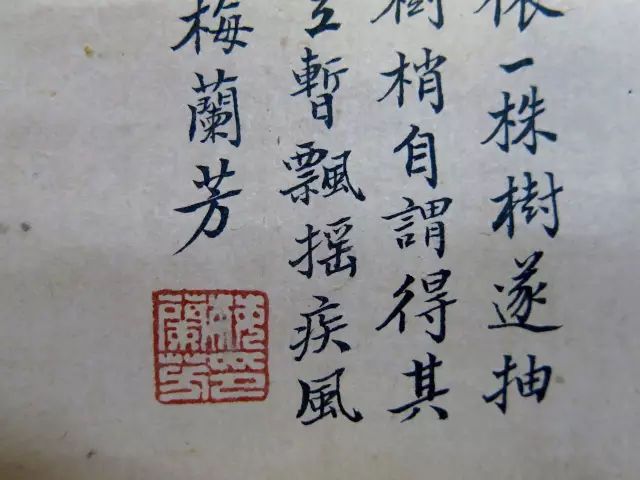 依一株樹遂抽
樹梢自謂得其
立暫飄摇疾風
梅蘭芳
蘭芳